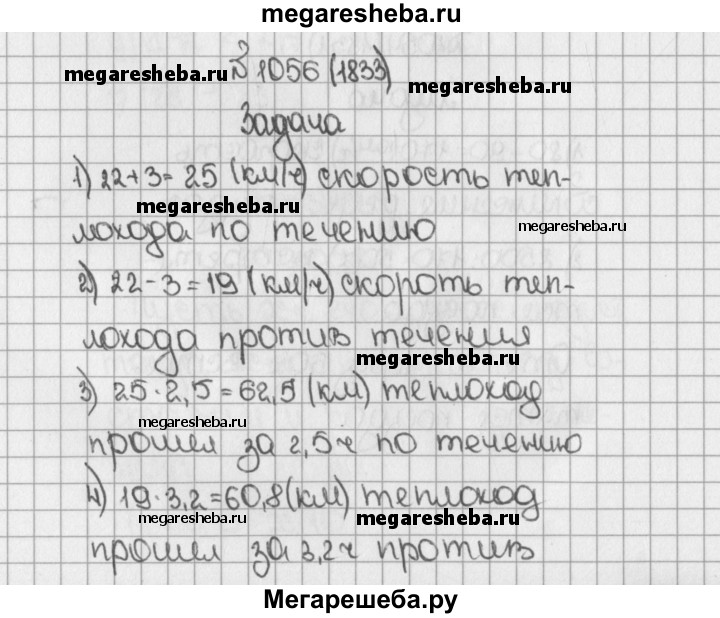 megaresheba.ru
№ 1056 (1833)
megaresheba.ru
megaresheba.ru
Задача
1) 22+3=25 (км/ч) скорость теп-
megaresheba.ru
лохода по течению
megaresheba.ru
2) 22-3=19 (км/ч) скороть теп-
лохода против течения
megaresheba.ru
3) 25·2,5=62,5 (км) теплоход
megaresheba.ru
прошел за 2,5ч по течению
4) 19·3,2=60,8(км) теплоход
megaresheba.ru
megaresheba.ru
прошел за 3,2ч против
Мегарешеба.ру